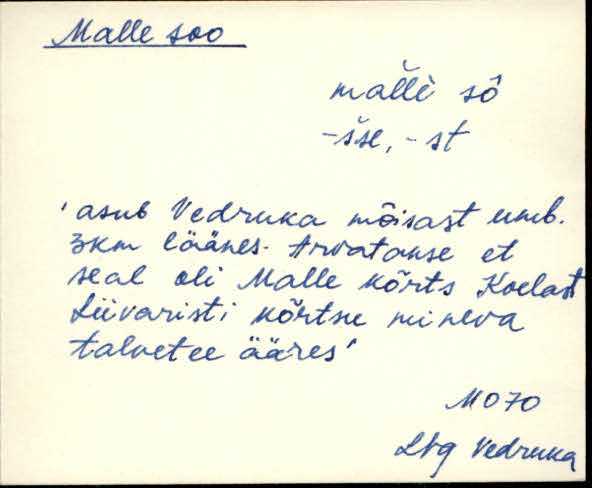 Malle soo
malle sô
-sse, -st
'asub Vedruka mõisast umb.
3km läänes. Arvatakse et
seal oli Malle kõrts Koelast
Liivaristi kõrtsu mineva
talvetee ääres'
MO70
Lvg Vedruka